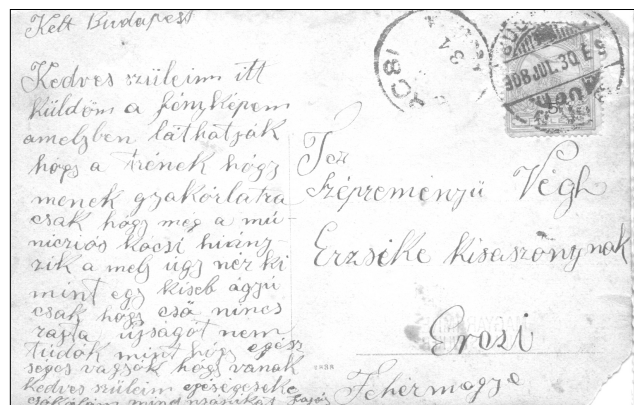 Kelt Budapest
Kedves szüleim itt
küldöm a fényképem
amelyben láthatják
hogy a trének hógy
menek gyakórlatra
csak hógy meg a mú-
nicziós kocsi hiány-
zik a mely úgy néz ki
mint egy kiseb ágyú
csak hogy cső nincs
rajta újságót nem
tudók mint hógy egész
séges vagyók hógy vanak
Kedves szüleim egéségeseke
csókólóm mindnyájukat
908 JUL. 30.
Tez
Szépreményü Végh
Erzsike kisaszonynak
Ercsi
Fehérmegye